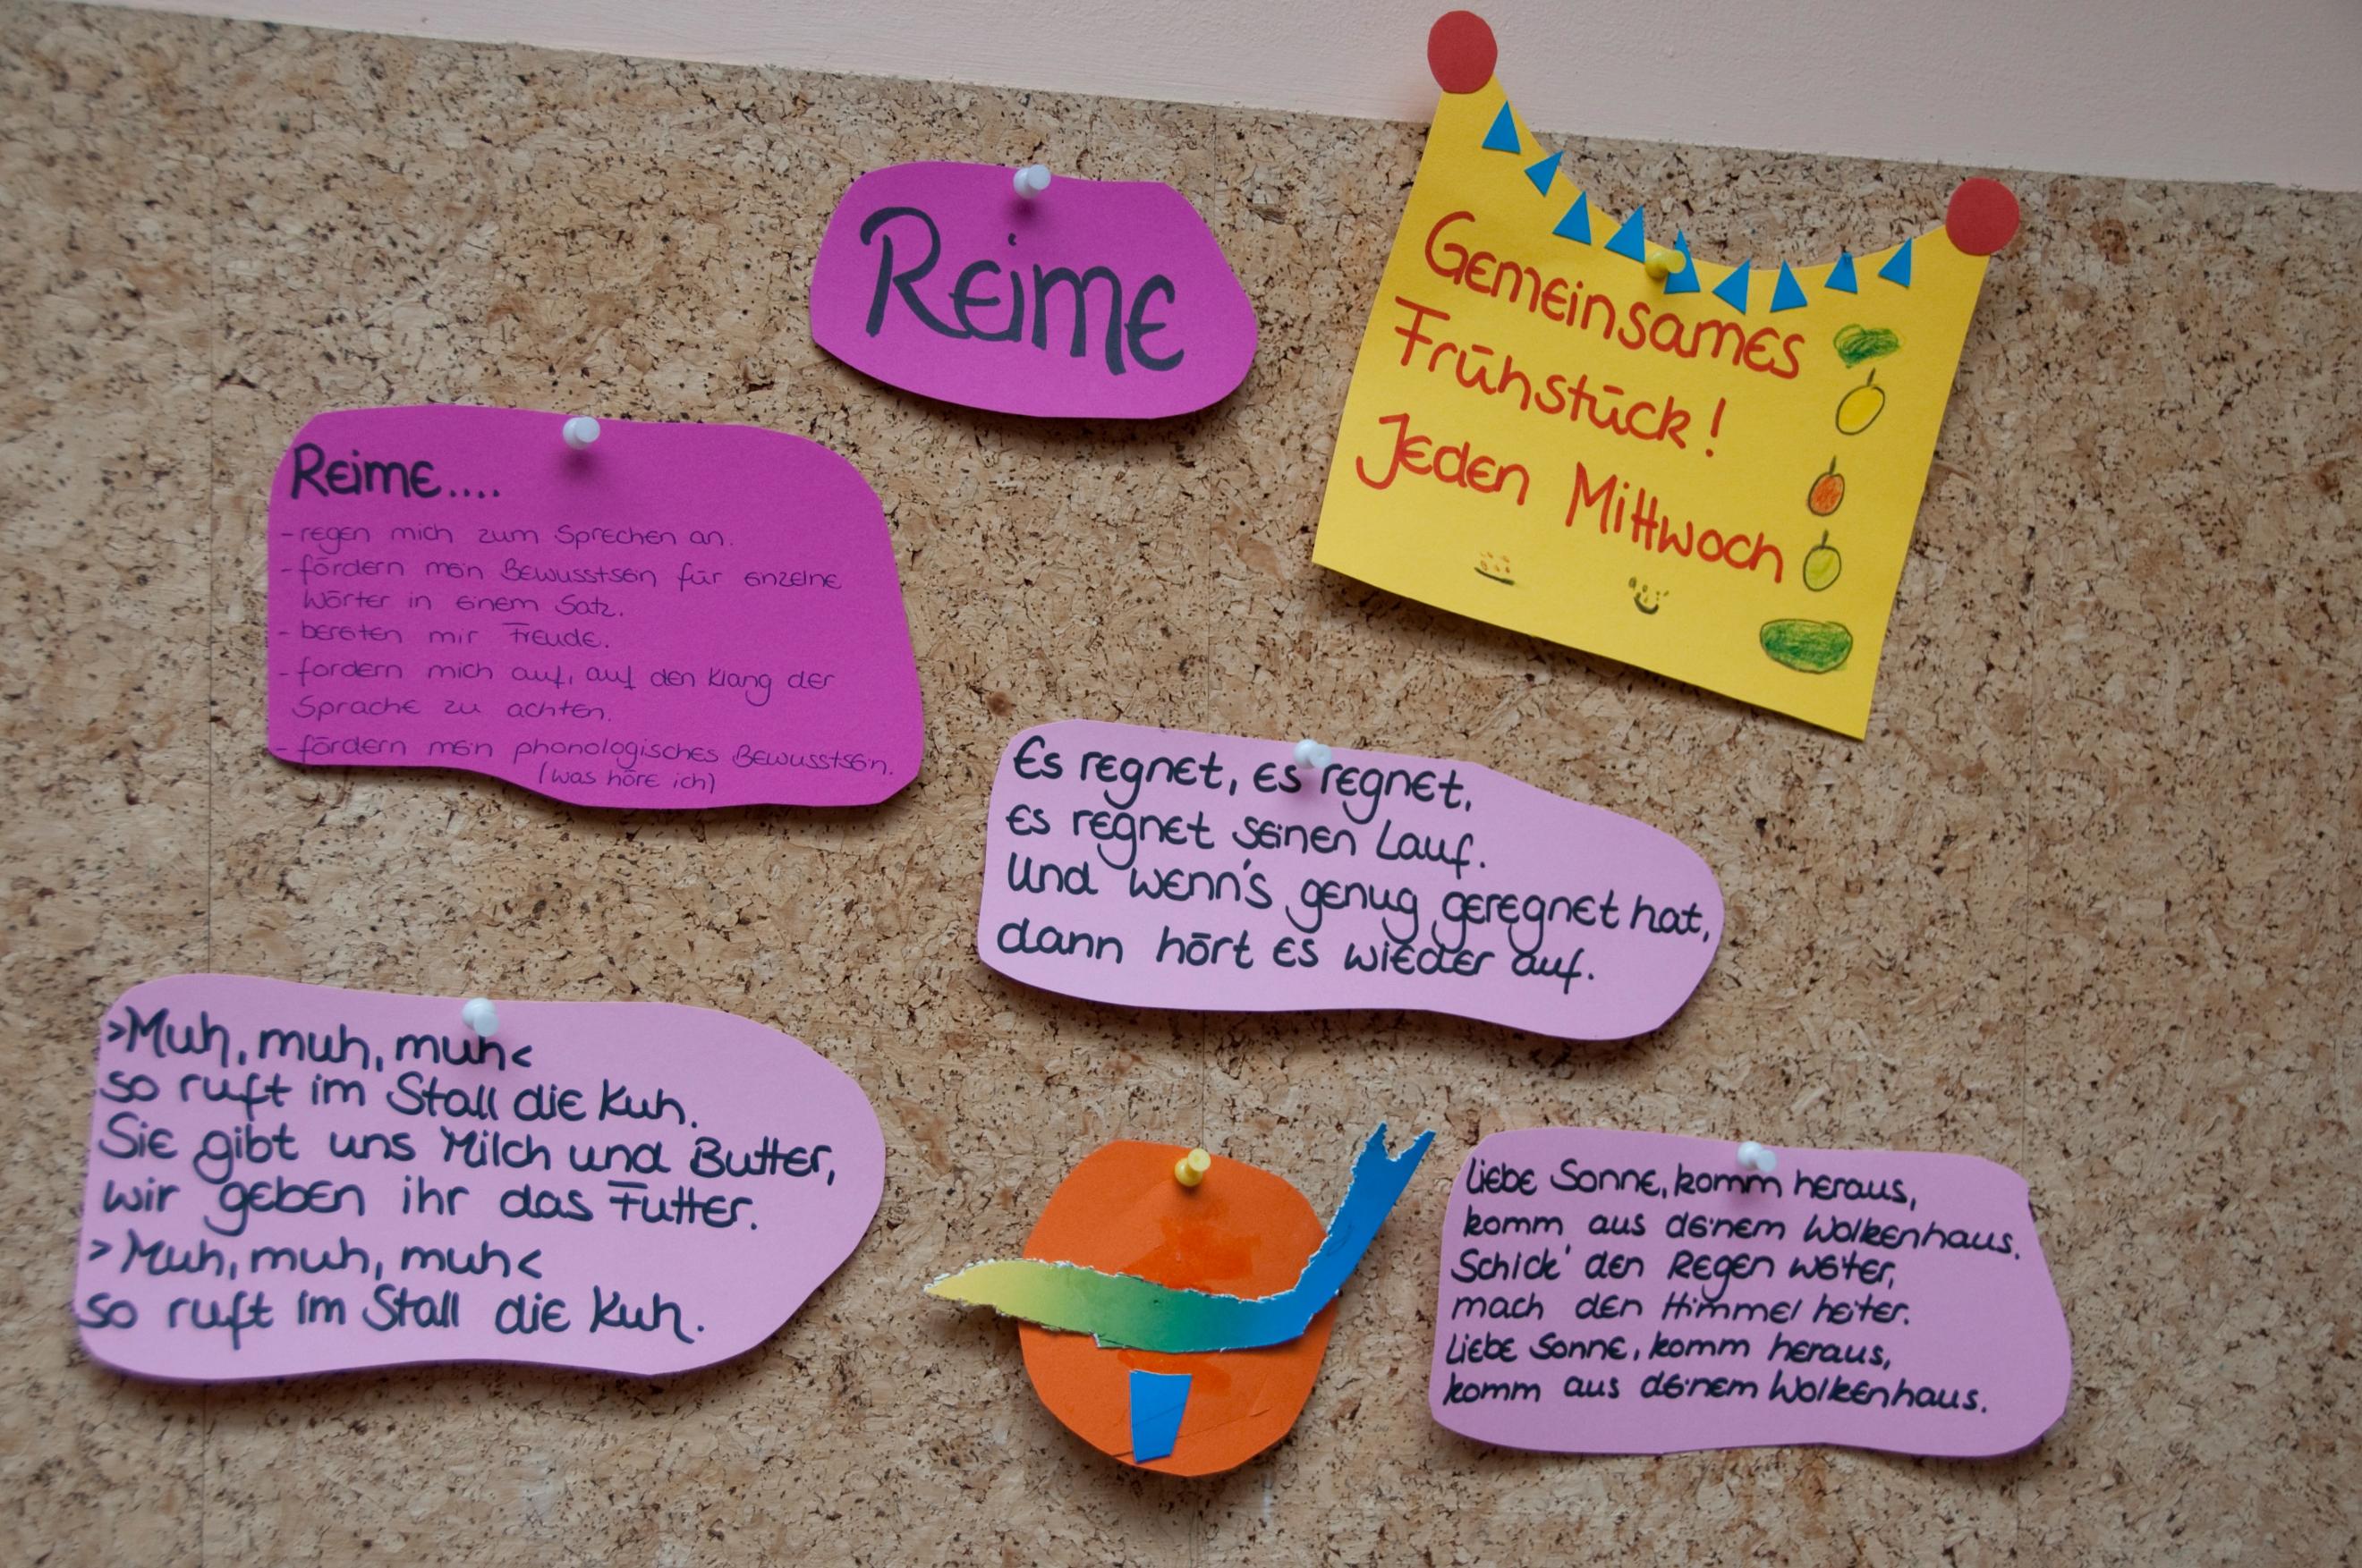 Reime
Gemeinsames
Frühstück!
Jeden Mittwoch
Reime....
- regen mich zum Sprechen an.
- fördern mein Bewusstsein für einzelne
Wörter in einem Satz.
- bereiten mir Freude.
- fordern mich auf, auf den Klang der
Sprache zu achten.
- fördern mein phonologisches Bewusstsein.
(was höre ich)
Es regnet, es regnet,
es regnet seinen Lauf.
Und wenn's genug geregnet hat,
dann hört es wieder auf.
>Muh, muh, muh<
so ruft im Stall die Kuh.
Sie gibt uns Milch und Butter,
wir geben ihr das Futter.
>Muh, muh, muh<
so ruft im Stall die Kuh.
Liebe Sonne, komm heraus,
komm aus deinem Wolkenhaus.
Schick' den Regen weiter,
mach den Himmel heiter.
Liebe Sonne, komm heraus,
komm aus deinem Wolkenhaus.